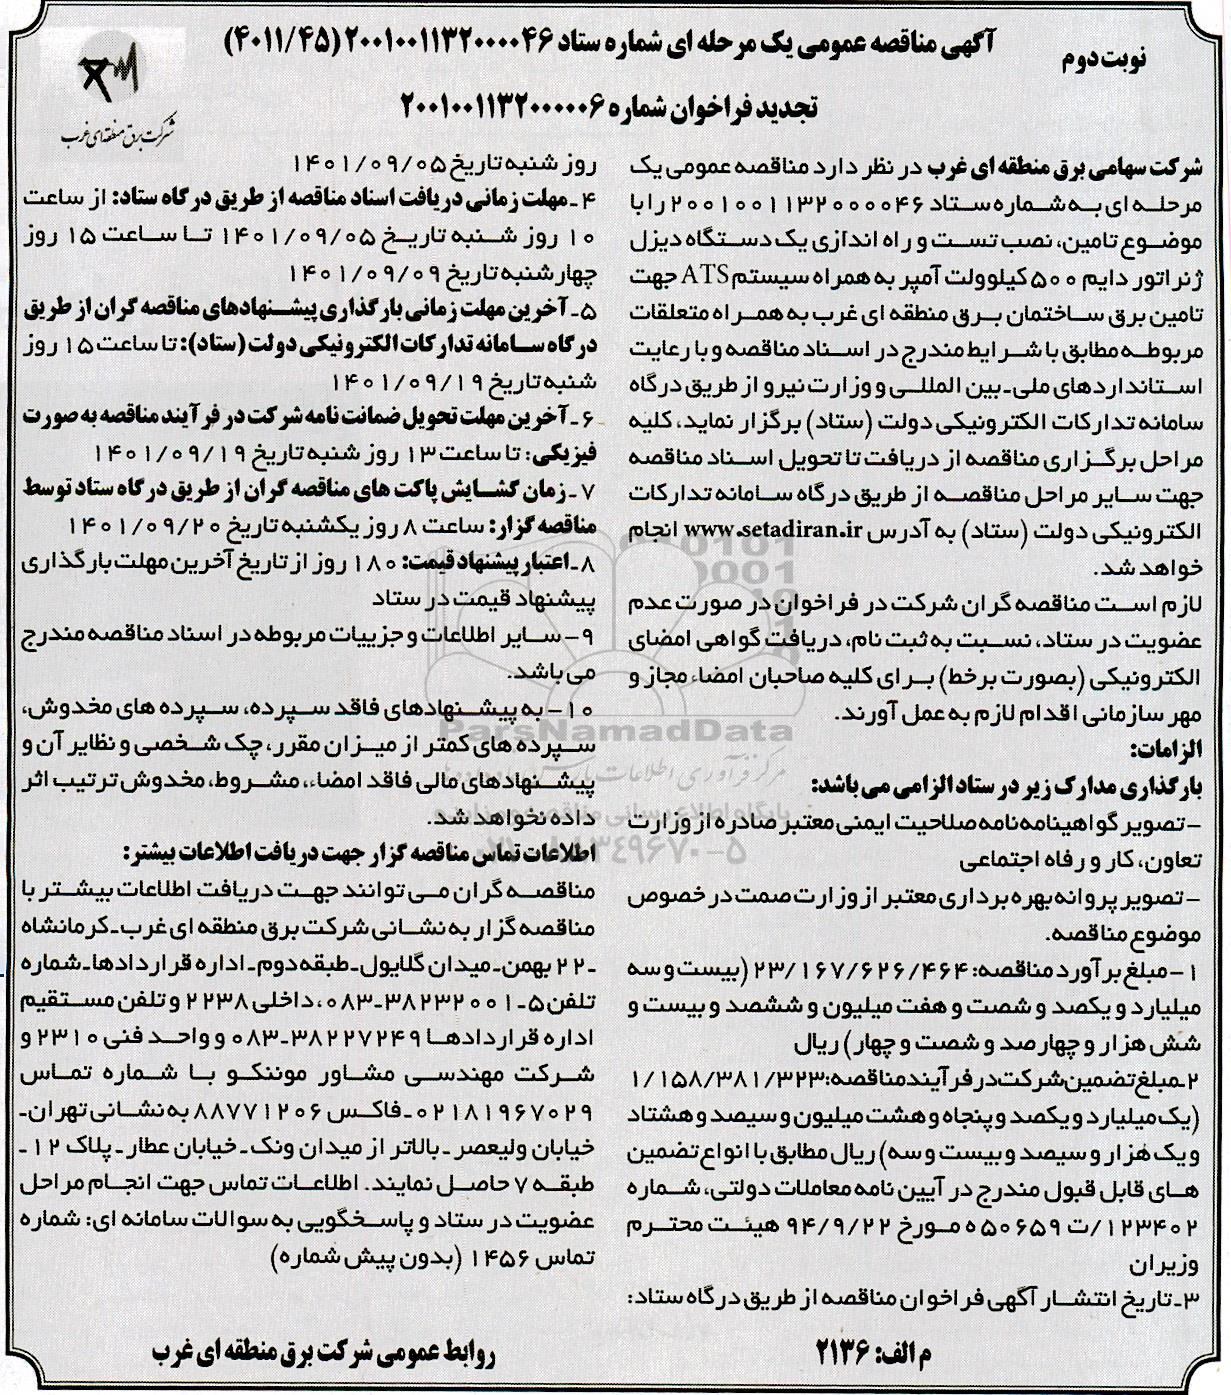 نوبت دوم
آگهی مناقصه عمومی یک مرحله ای شماره ستاد ۲۰۰۱۰۰۱۱۳۲۰۰۰۰۴۶ (۴۰۱۱/۴۵)
تجدید فراخوان شماره ۲۰۰۱۰۰۱۱۳۲۰۰۰۰۰۶
شرکت برق منطقه‌ای غرب
شرکت سهامی برق منطقه ای غرب در نظر دارد مناقصه عمومی یک
مرحله ای به شماره ستاد ۲۰۰۱۰۰۱۱۳۲۰۰۰۰۴۶ را با
موضوع تامین، نصب تست و راه اندازی یک دستگاه دیزل
ژنراتور دایم ۵۰۰ کیلوولت آمپر به همراه سیستم ATS جهت
تامین برق ساختمان برق منطقه ای غرب به همراه متعلقات
مربوطه مطابق با شرایط مندرج در اسناد مناقصه و با رعایت
استانداردهای ملی-بین المللی و وزارت نیرو از طریق درگاه
سامانه تدارکات الکترونیکی دولت (ستاد) برگزار نماید، کلیه
مراحل برگزاری مناقصه از دریافت تا تحویل اسناد مناقصه
جهت سایر مراحل مناقصه از طریق درگاه سامانه تدارکات
الکترونیکی دولت (ستاد) به آدرس www.setadiran.ir انجام
خواهد شد.
لازم است مناقصه گران شرکت در فراخوان در صورت عدم
عضویت در ستاد، نسبت به ثبت نام، دریافت گواهی امضای
الکترونیکی (بصورت برخط) برای کلیه صاحبان امضاء مجاز و
مهر سازمانی اقدام لازم به عمل آورند.
الزامات:
بارگذاری مدارک زیر در ستاد الزامی می باشد:
-تصویر گواهینامه نامه صلاحیت ایمنی معتبر صادره از وزارت
تعاون، کار و رفاه اجتماعی
-تصویر پروانه بهره برداری معتبر از وزارت صمت در خصوص
موضوع مناقصه.
۱-مبلغ برآورد مناقصه: ۲۳/۱۶۷/۶۲۶/۴۶۴ (بیست و سه
میلیارد و یکصد و شصت و هفت میلیون و ششصد و بیست و
شش هزار و چهارصد و شصت و چهار) ریال
۲-مبلغ تضمین شرکت در فرآیند مناقصه: ۱/۱۵۸/۳۸۱/۳۲۳
(یک میلیارد و یکصد و پنجاه و هشت میلیون و سیصد و هشتاد
و یک هزار و سیصد و بیست و سه) ریال مطابق با انواع تضمین
های قابل قبول مندرج در آیین نامه معاملات دولتی، شماره
۱۲۳۴۰۲/ت ۵۰۶۵۹ه مورخ ۹۴/۹/۲۲ هیئت محترم
وزیران
۳-تاریخ انتشار آگهی فراخوان مناقصه از طریق درگاه ستاد:
روز شنبه تاریخ ۱۴۰۱/۰۹/۰۵
۴-مهلت زمانی دریافت اسناد مناقصه از طریق درگاه ستاد: از ساعت
۱۰ روز شنبه تاریخ ۱۴۰۱/۰۹/۰۵ تا ساعت ۱۵ روز
چهارشنبه تاریخ ۱۴۰۱/۰۹/۰۹
۵-آخرین مهلت زمانی بارگذاری پیشنهادهای مناقصه گران از طریق
درگاه سامانه تدارکات الکترونیکی دولت (ستاد): تا ساعت ۱۵ روز
شنبه تاریخ ۱۴۰۱/۰۹/۱۹
۶-آخرین مهلت تحویل ضمانت نامه شرکت در فرآیند مناقصه به صورت
فیزیکی: تا ساعت ۱۳ روز شنبه تاریخ ۱۴۰۱/۰۹/۱۹
۷-زمان گشایش پاکت های مناقصه گران از طریق درگاه ستاد توسط
مناقصه گزار: ساعت ۸ روز یکشنبه تاریخ ۱۴۰۱/۰۹/۲۰
۸-اعتبار پیشنهاد قیمت: ۱۸۰ روز از تاریخ آخرین مهلت بارگذاری
پیشنهاد قیمت در ستاد
۹-سایر اطلاعات و جزییات مربوطه در اسناد مناقصه مندرج
می باشد.
۱۰-به پیشنهادهای فاقد سپرده، سپرده های مخدوش،
سپرده های کمتر از میزان مقرر، چک شخصی و نظایر آن و
پیشنهادهای مالی فاقد امضاء، مشروط، مخدوش ترتیب اثر
داده نخواهد شد.
اطلاعات تماس مناقصه گزار جهت دریافت اطلاعات بیشتر:
مناقصه گران می توانند جهت دریافت اطلاعات بیشتر با
مناقصه گزار به نشانی شرکت برق منطقه ای غرب-کرمانشاه
-۲۲ بهمن-میدان گلایول-طبقه دوم-اداره قراردادها-شماره
تلفن ۵-۳۸۲۳۲۰۰۱-۰۸۳، داخلی ۲۲۳۸ و تلفن مستقیم
اداره قراردادها ۳۸۲۲۷۲۴۹-۰۸۳ و واحد فنی ۲۳۱۰ و
شرکت مهندسی مشاور موننکو با شماره تماس
۰۲۱۸۱۹۶۷۰۲۹-فاکس ۸۸۷۷۱۲۰۶ به نشانی تهران-
خیابان ولیعصر-بالاتر از میدان ونک-خیابان عطار-پلاک ۱۲-
طبقه ۷ حاصل نمایند. اطلاعات تماس جهت انجام مراحل
عضویت در ستاد و پاسخگویی به سوالات سامانه ای: شماره
تماس ۱۴۵۶ (بدون پیش شماره)
ParsNamadData
م الف: ۲۱۳۶
روابط عمومی شرکت برق منطقه ای غرب